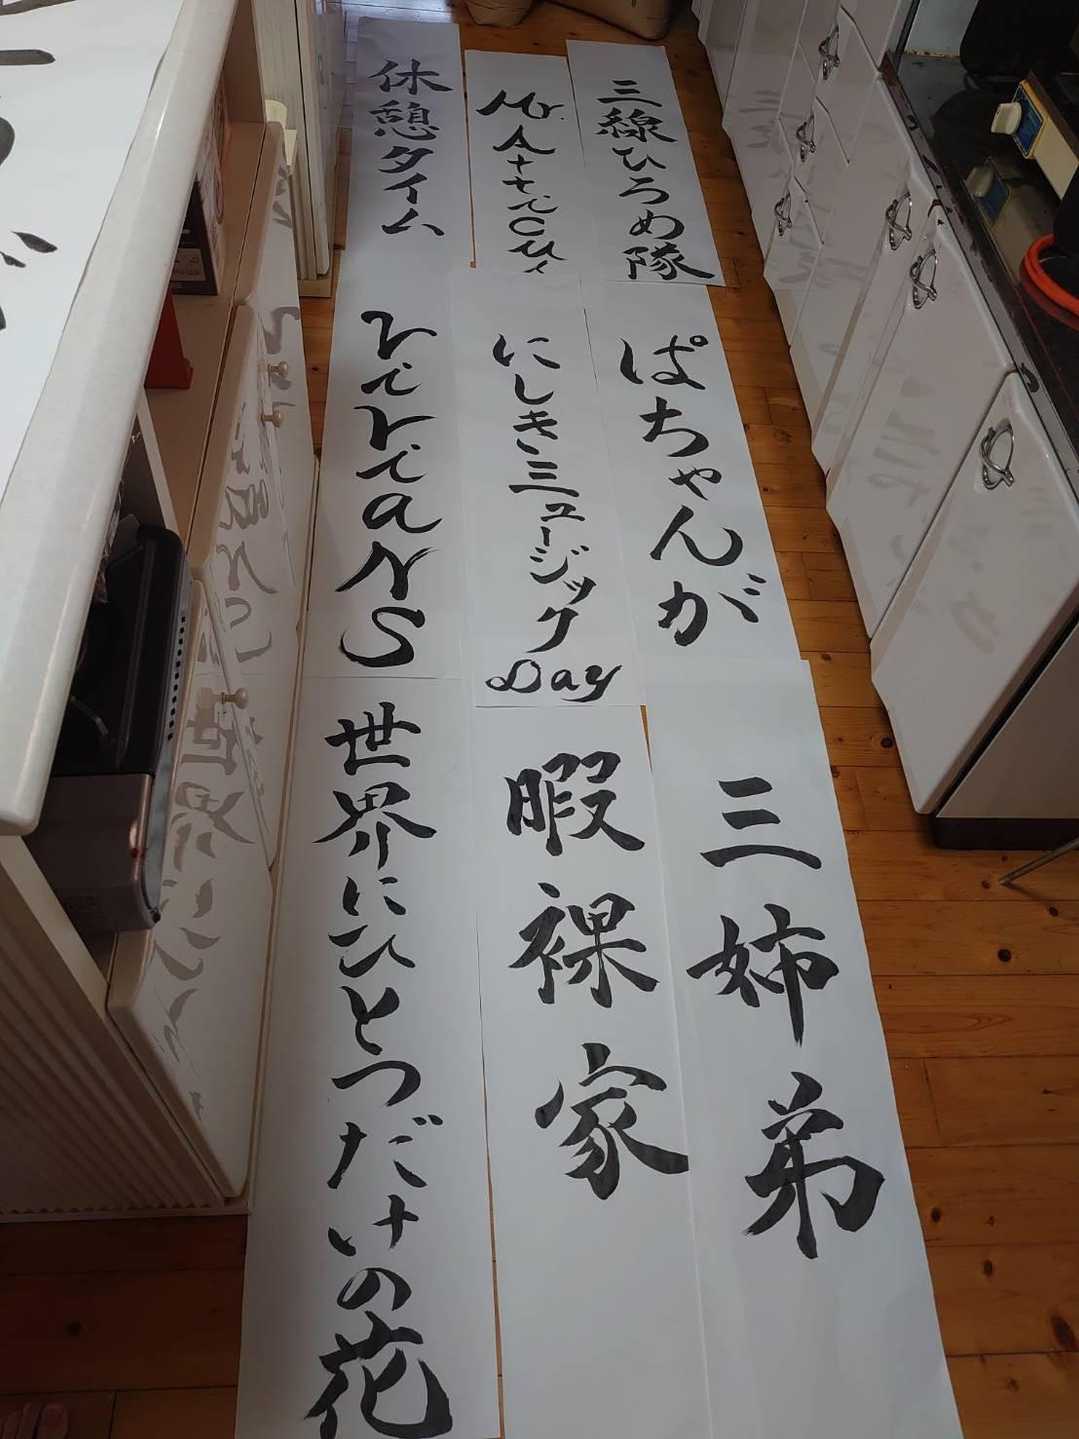 三線ひろめ隊
Mr.
休憩タイム
ぱちゃんが
にしきミュージック
Day
三姉弟
暇裸家
世界にひとつだけの花